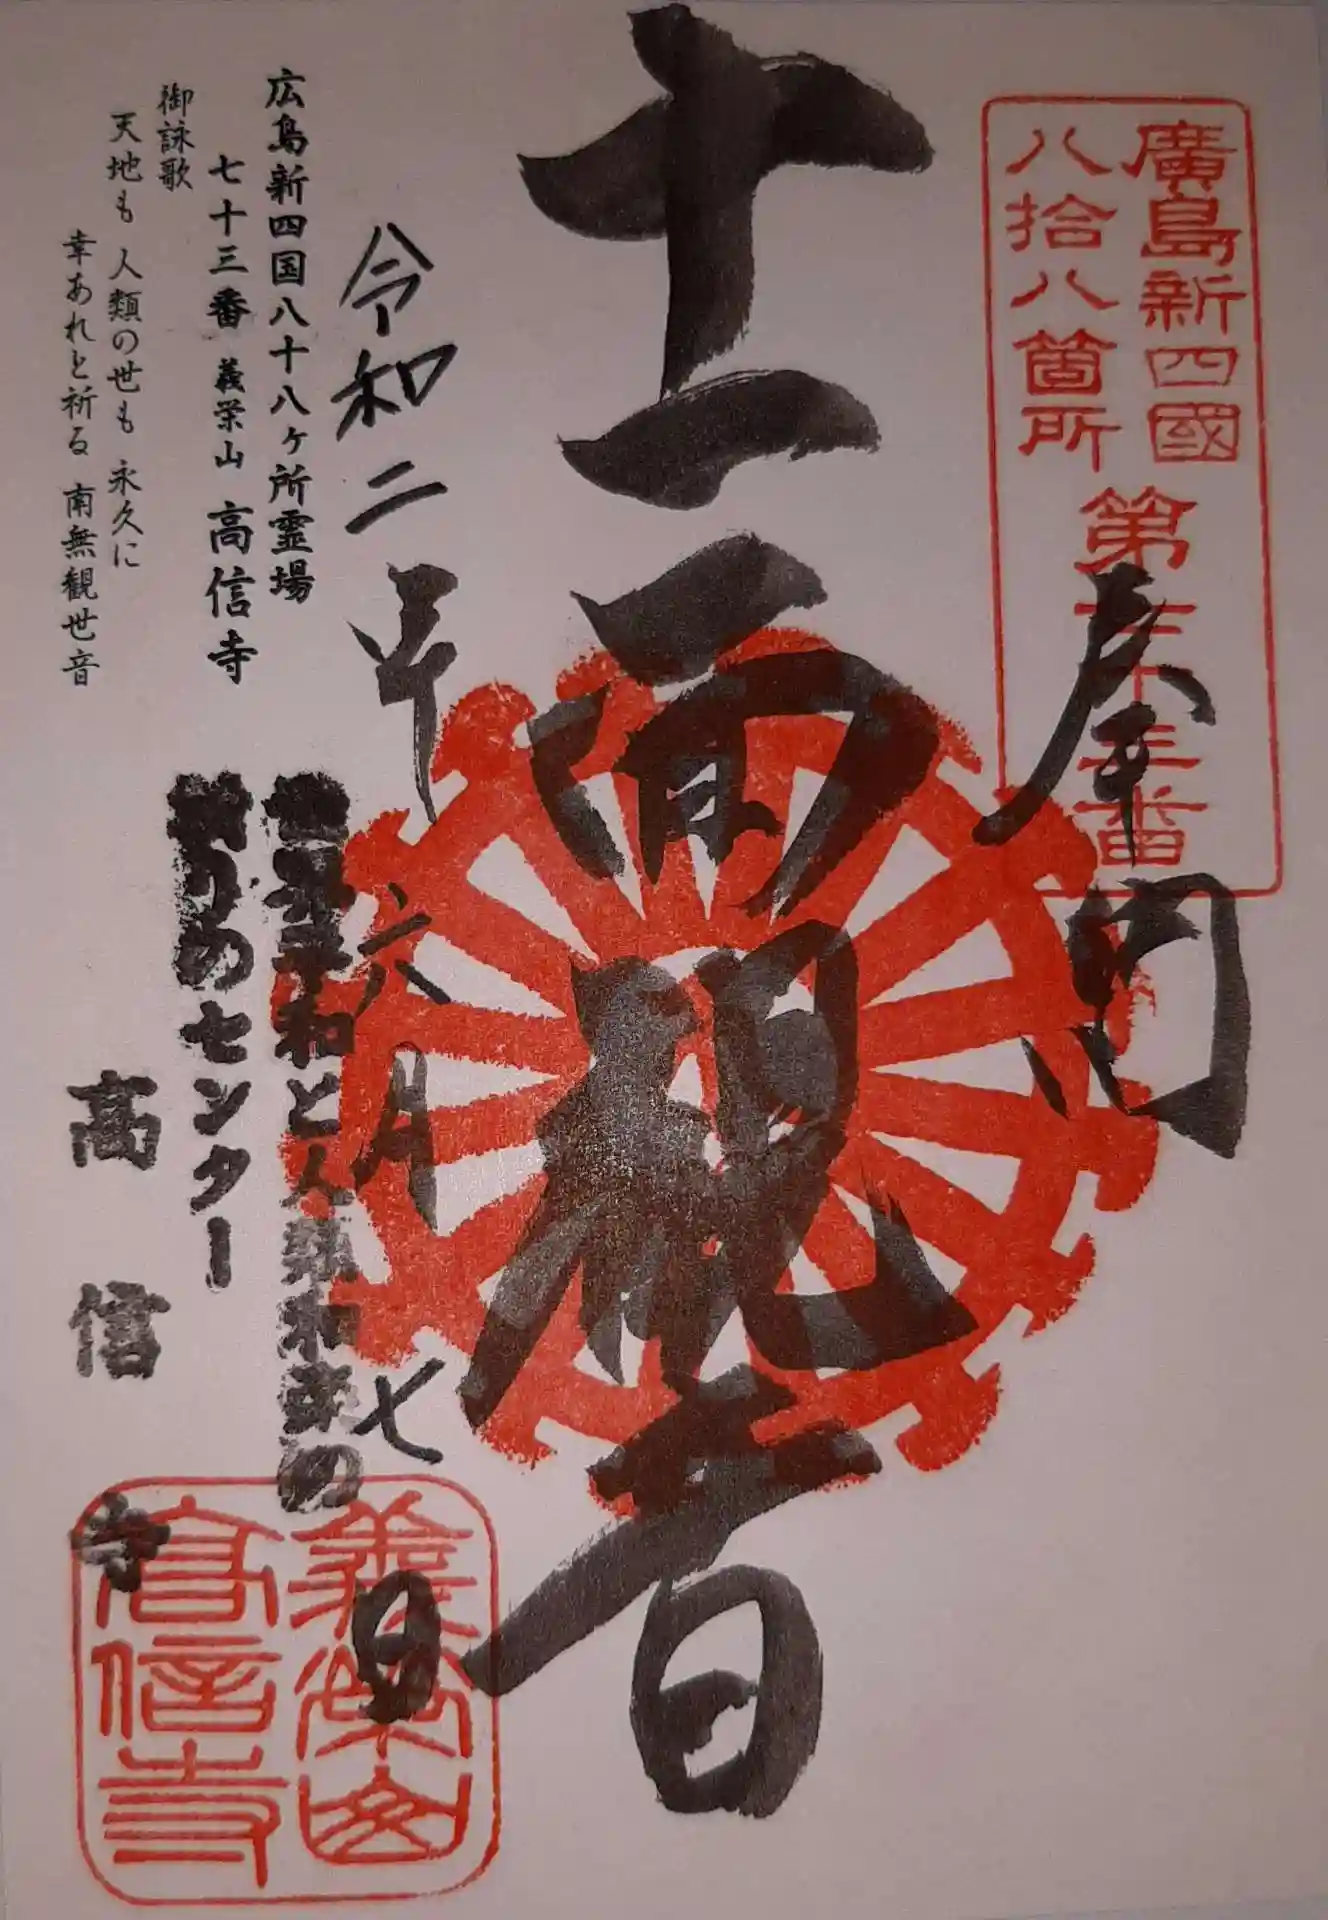 廣島新四國
八拾八箇所
第七十三番
奉拝
十一面観音
令和二年六月七日
広島新四国八十八ヶ所霊場
七十三番 義栄山 高信寺
御詠歌
天地も 人類の世も 永久に
幸あれと祈る 南無観世音
世界平和と人類和楽の
祈りのセンター
高信寺
義栄山
高信寺